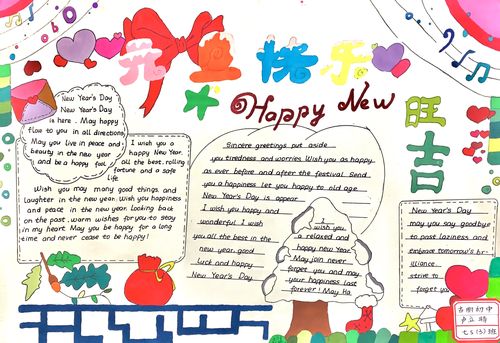 元旦快乐
Happy New
旺
吉
New Year's Day
New Year's Day
is here. May happy
flow to you in all directions
May you live in peace and
beauty in the new year
and be a happy fool
I wish you a
happy New Year,
all the best, rolling
fortune and a safe
life.
Wish you may many good things and
laughter in the new year. Wish you happiness
and peace in the new year. Looking back
on the past, warm wishes for you to stay
in my heart. May you be happy for a long
time and never cease to be happy!
Sincere greetings put aside
you tiredness and worries. Wish you as happy
as ever before and after the festival. Send
you a happiness let you happy to old age
New Year's Day is appear
I wish you happy and
wonderful. I wish
you all the best in the
new year, good
luck and happy
New Year's Day
I
wish you
a relaxed and
happy new Year.
May join never
forget you and may
your happiness last
forever! May Ha
New Year's Day
may you say goodbye
to past laziness and
embrace tomorrow's br-
illiance.
strive to
forget yo
初中
七5(3)班